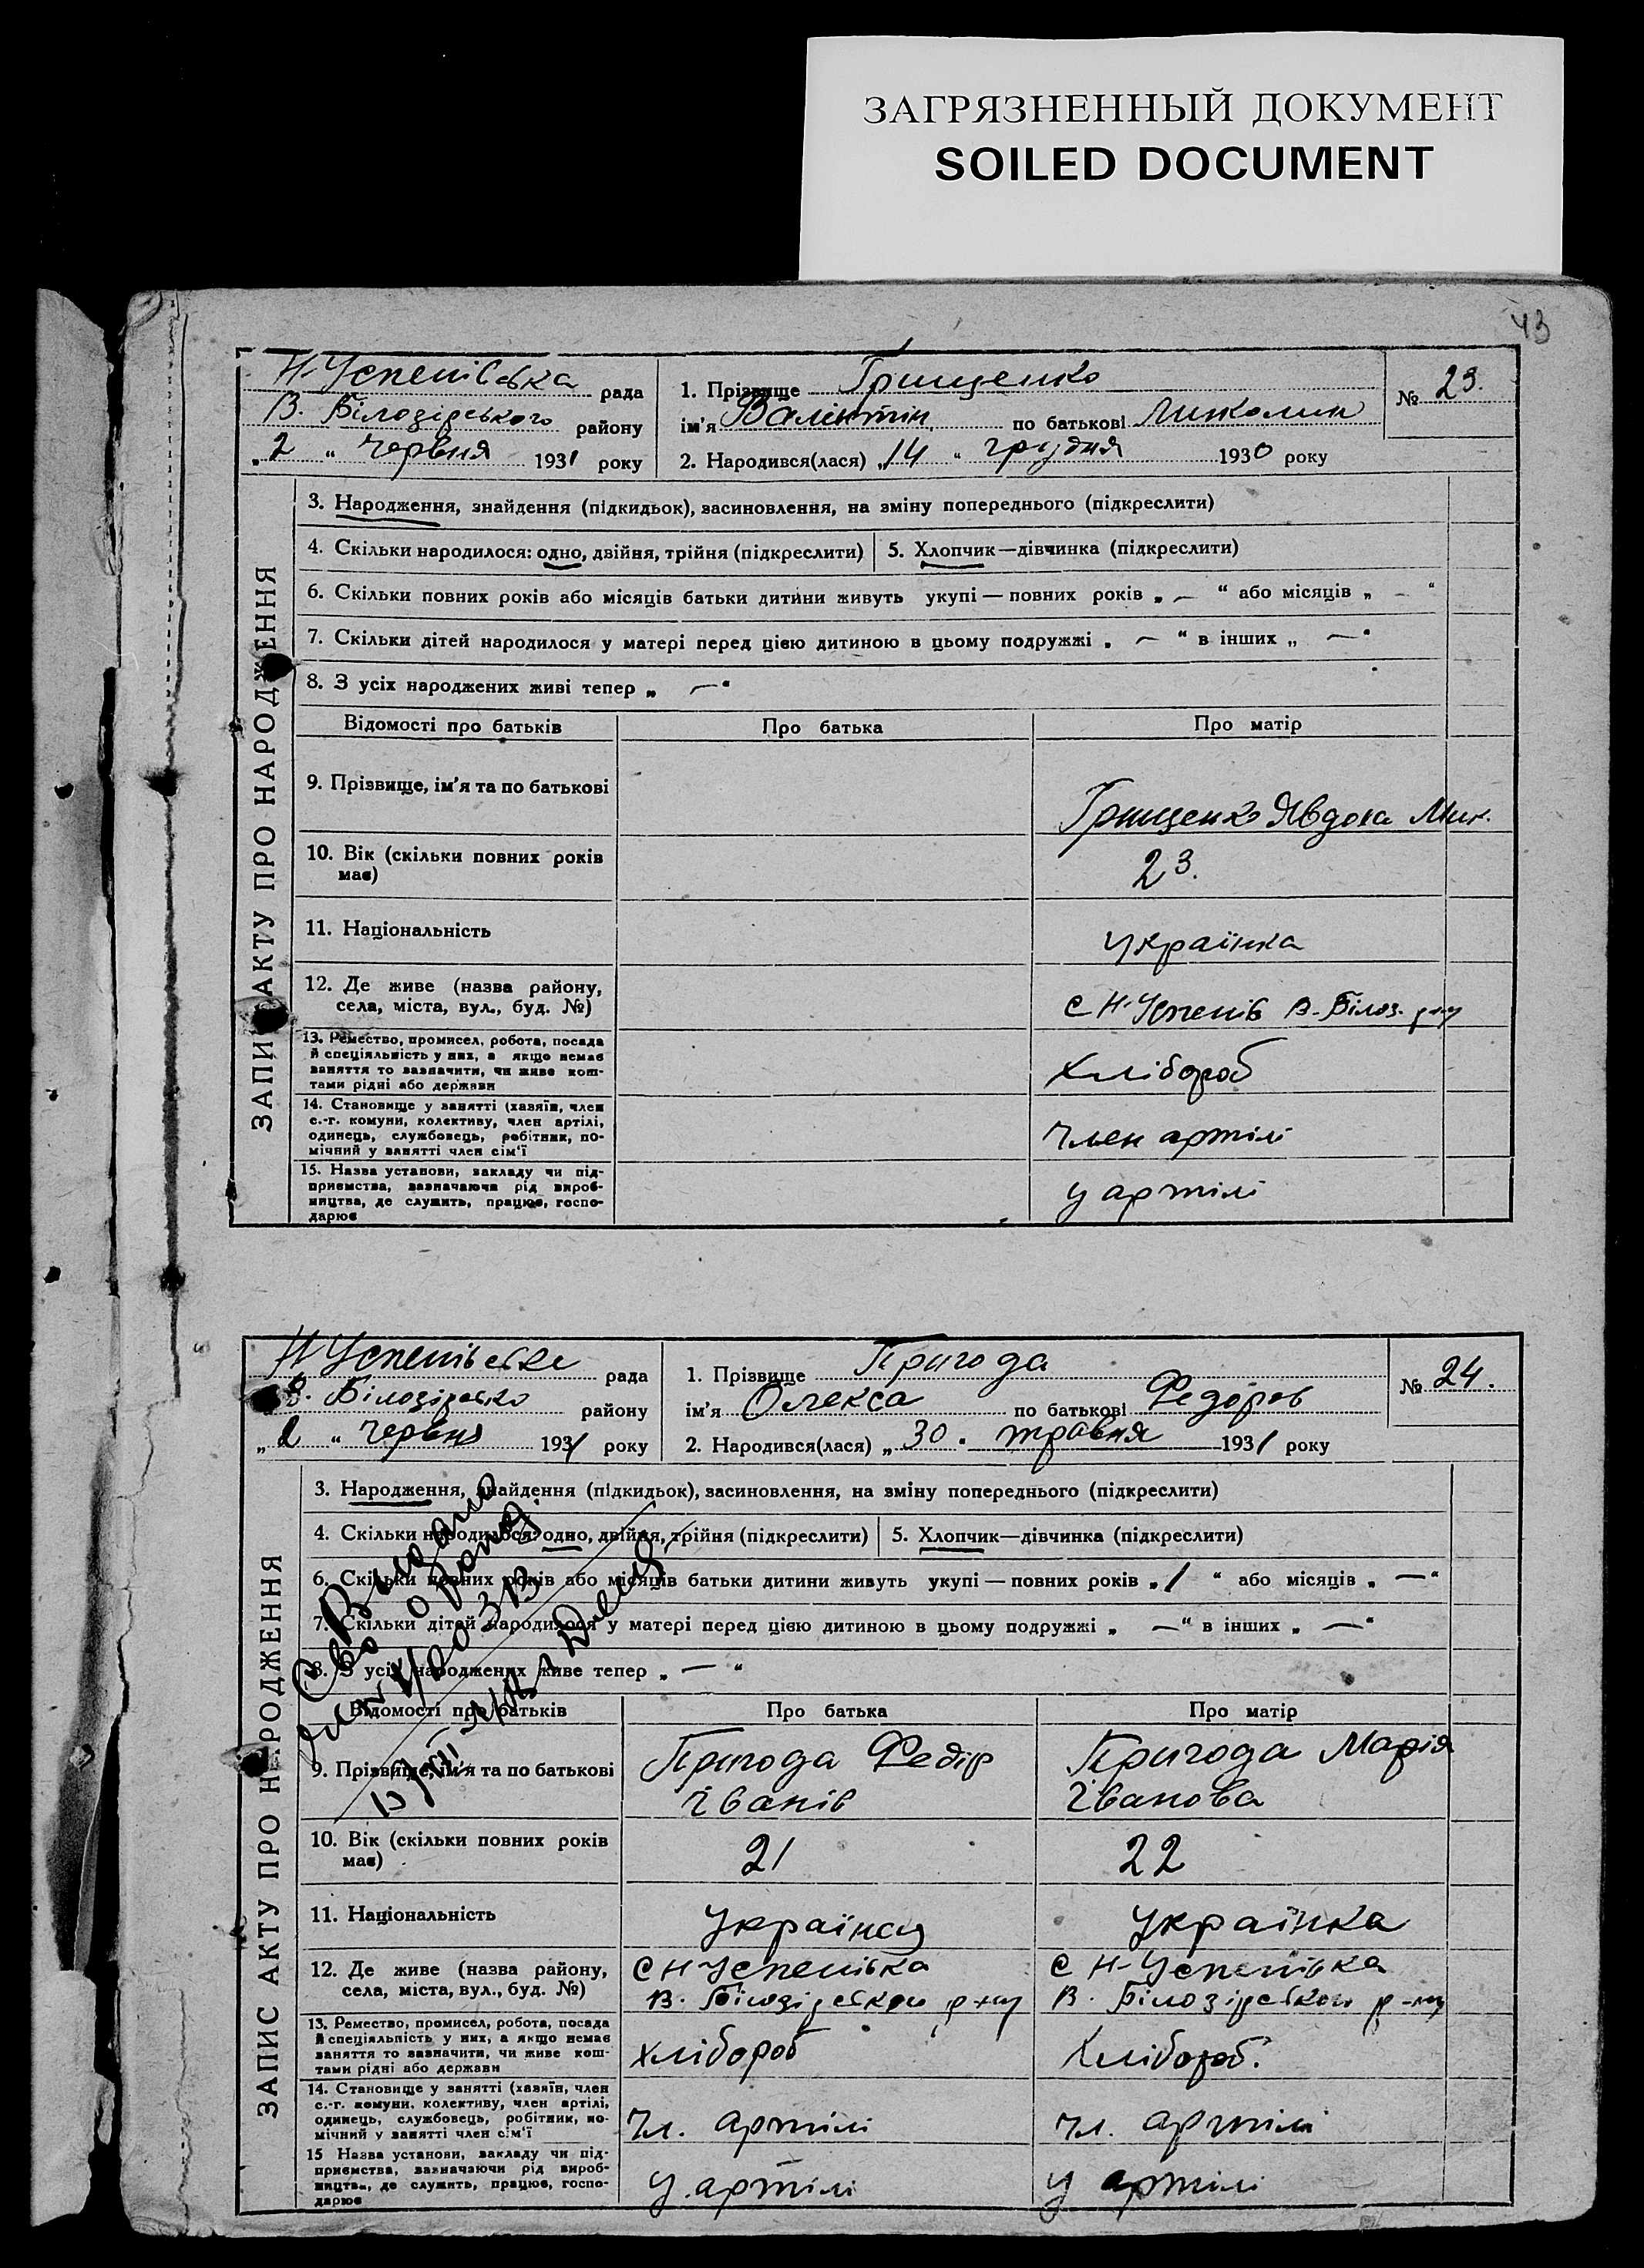 ЗАГРЯЗНЕННЫЙ ДОКУМЕНТ
SOILED DOCUMENT
43
ЗАПИС АКТУ ПРО НАРОДЖЕННЯ
Н-Успенівська рада
В. Білозірського району
„2 “ червня 1931 року
1. Прізвище Грищенко
ім'я Валінтин по батькові Миколин
2. Народився(лася) „14 “ грудня 1930 року
№ 23.
3. Народження, знайдення (підкидьок), засиновлення, на зміну попереднього (підкреслити)
4. Скільки народилося: одно, двійня, трійня (підкреслити) 5. Хлопчик—дівчинка (підкреслити)
6. Скільки повних років або місяців батьки дитини живуть укупі — повних років „ — “ або місяців „ — “
7. Скільки дітей народилося у матері перед цією дитиною в цьому подружжі „ — “ в інших „ — “
8. З усіх народжених живі тепер „ — “
Відомості про батьків Про батька Про матір
9. Прізвище, ім'я та по батькові
Грищенко Явдоха Мик.
10. Вік (скільки повних років
має)
23.
11. Національність
українка
12. Де живе (назва району,
села, міста, вул., буд. №)
с Н-Успенів В-Білоз. р-ну
13. Ремество, промисел, робота, посада
й спеціяльність у них, а якщо немає
заняття то зазначити, чи живе кош-
тами рідні або держави
Хлібороб
14. Становище у занятті (хазяїн, член
с.-г. комуни, колективу, член артілі,
одинець, службовець, робітник, по-
мічний у занятті член сім'ї
Член артілі
15. Назва установи, закладу чи під-
приємства, зазначаючи рід вироб-
ництва, де служить, працює, госпо-
дарює
у артілі
ЗАПИС АКТУ ПРО НАРОДЖЕННЯ
Н Успенівська рада
В. Білозірсько району
„2 “ червня 1931 року
1. Прізвище Пригода
ім'я Олекса по батькові Федоров
2. Народився(лася) „30 “ травня 1931 року
№ 24.
3. Народження, знайдення (підкидьок), засиновлення, на зміну попереднього (підкреслити)
4. Скільки народилося: одно, двійня, трійня (підкреслити) 5. Хлопчик—дівчинка (підкреслити)
6. Скільки повних років або місяців батьки дитини живуть укупі — повних років „ 1 “ або місяців „ — “
7. Скільки дітей народилося у матері перед цією дитиною в цьому подружжі „ — “ в інших „ — “
8. З усіх народжених живе тепер „ — “
Выдано
Сво о рожд.
Відомості про батьків Про батька Про матір
9. Прізвище, ім'я та по батькові
Пригода Федір
Іванів
Пригода Марія
Іванова
10. Вік (скільки повних років
має)
21
22
11. Національність
українец
українка
12. Де живе (назва району,
села, міста, вул., буд. №)
с Н-Успенівка
В. Білозірськои р-ну
с Н-Успенівка
В. Білозірськои р-ну
13. Ремество, промисел, робота, посада
й спеціяльність у них, а якщо немає
заняття то зазначити, чи живе кош-
тами рідні або держави
хлібороб
Хлібороб.
14. Становище у занятті (хазяїн, член
с.-г. комуни, колективу, член артілі,
одинець, службовець, робітник, по-
мічний у занятті член сім'ї
Чл. артілі
Чл. артілі
15 Назва установи, закладу чи під-
приємства, зазначаючи рід вироб-
ництва, де служить, працює, госпо-
дарює
У артілі
У артілі